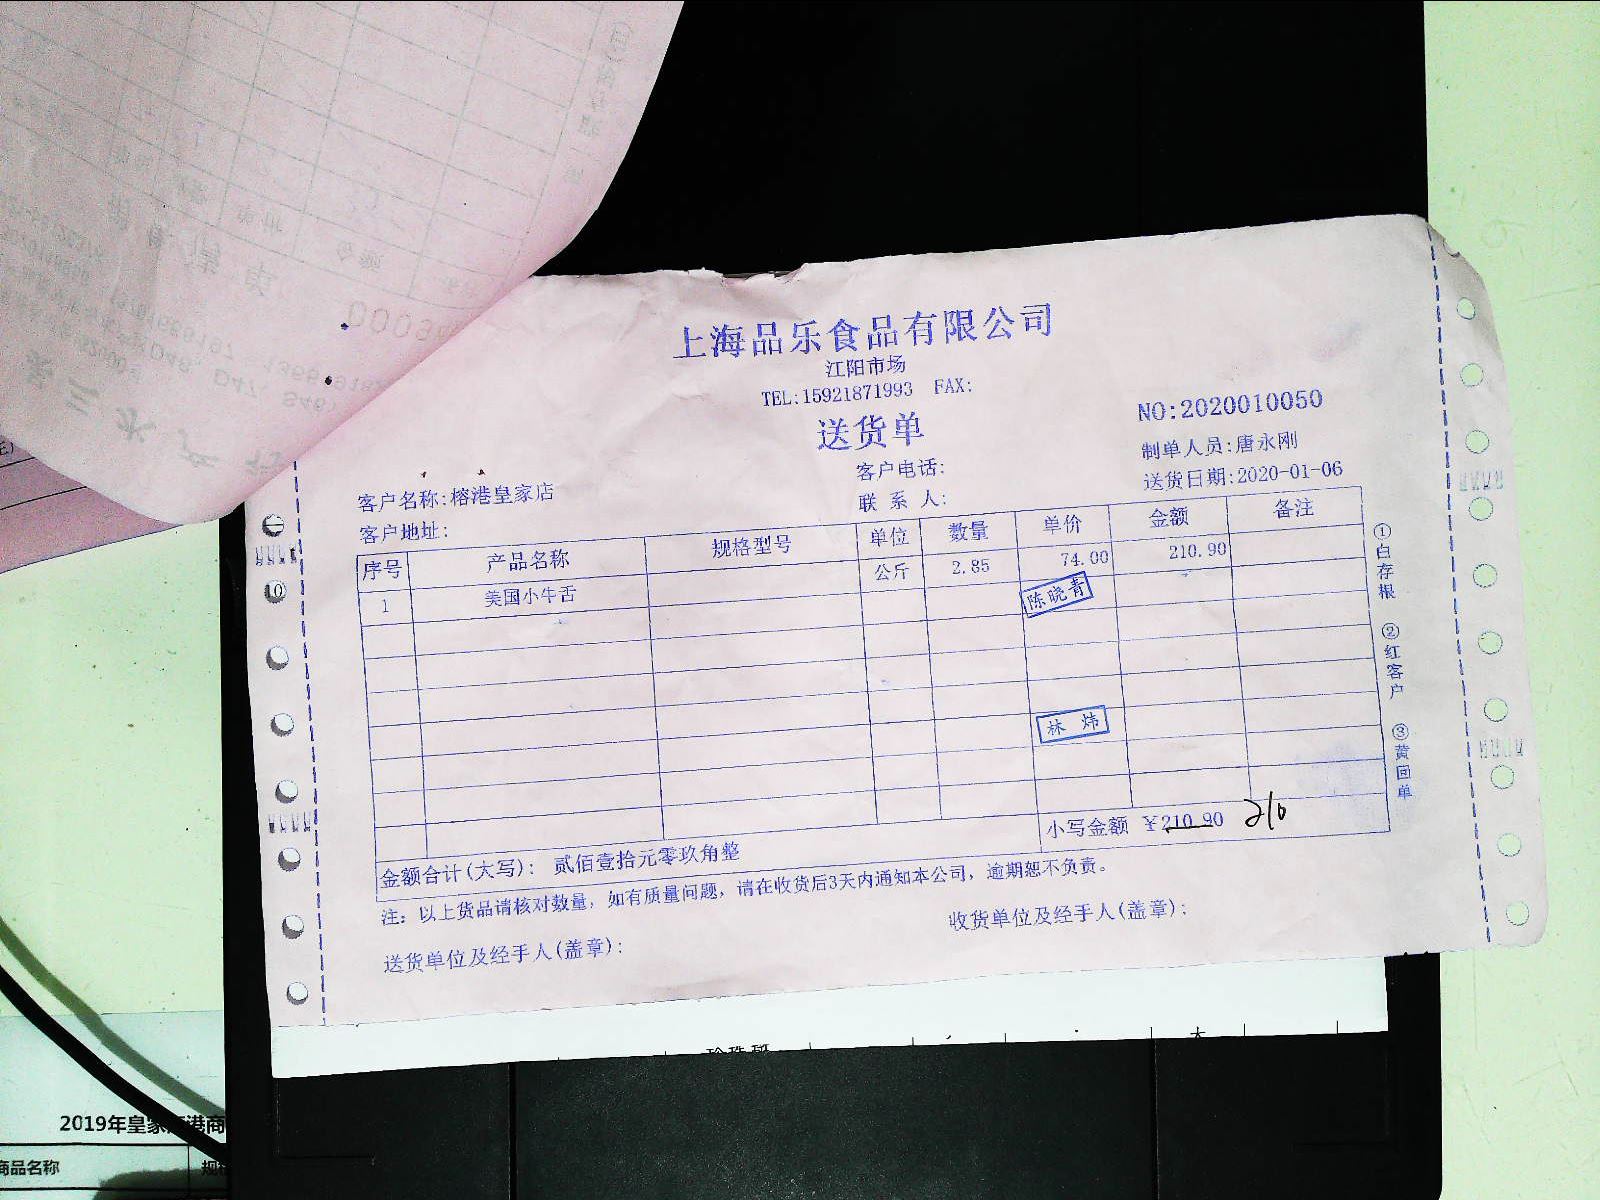 上海品乐食品有限公司
江阳市场
TEL:15921871993 FAX:
送货单
NO:2020010050
制单人员:唐永刚
客户电话:
送货日期:2020-01-06
客户名称:榕港皇家店
联 系 人:
客户地址:
序号 产品名称 规格型号 单位 数量 单价 金额 备注
1 美国小牛舌 公斤 2.85 74.00 210.90
陈晓青
林 炜
小写金额 ￥210.90 210
金额合计(大写): 贰佰壹拾元零玖角整
注: 以上货品请核对数量, 如有质量问题, 请在收货后3天内通知本公司, 逾期恕不负责。
送货单位及经手人(盖章):
收货单位及经手人(盖章):
①白存根 ②红客户 ③黄回单
10
2019年皇家 港商
商品名称